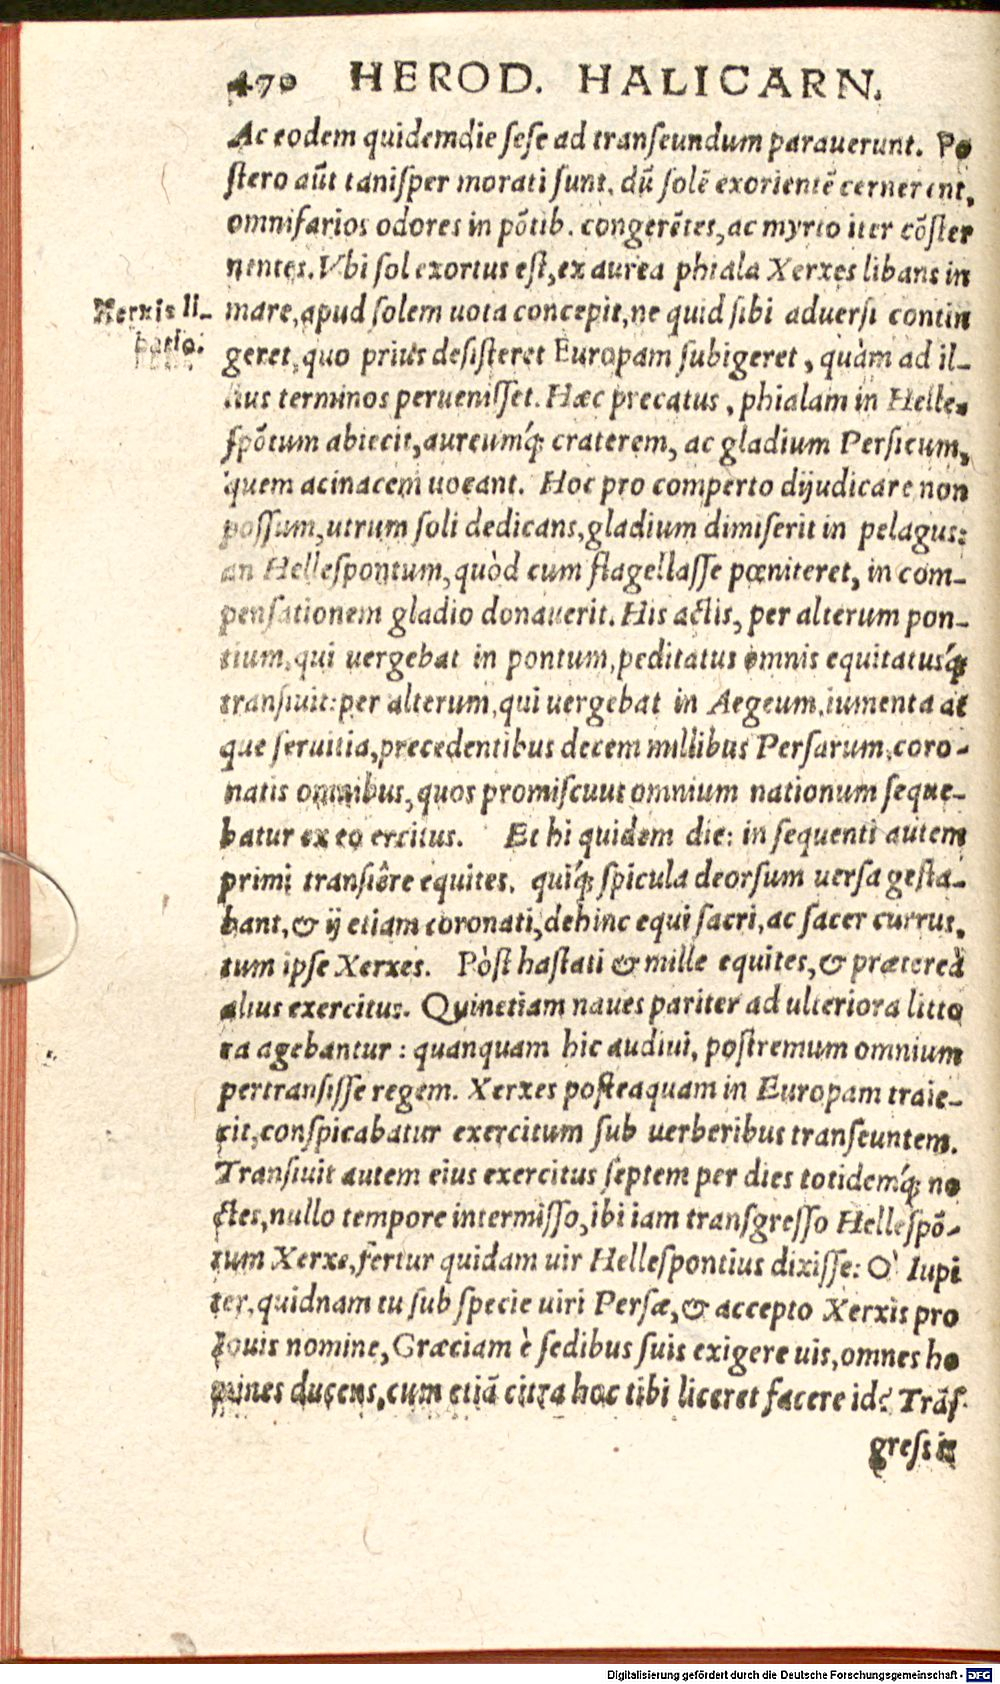 470 HEROD. HALICARN.
Ac eodem quidem die sese ad transeundum parauerunt. Po
stero aūt tanisper morati sunt, dū solē exorientē cernerent,
omnifarios odores in pōtib. congerētes, ac myrto iter cōster
nentes. Vbi sol exortus est, ex aurea phiala Xerxes libans in
Xerxis li-
mare, apud solem uota concepit, ne quid sibi aduersi contin
batio.
geret, quo prius desisteret Europam subigeret, quàm ad il-
lius terminos peruenisset. Hæc precatus, phialam in Helle-
spōtum abiecit, aureumq́; craterem, ac gladium Persicum,
quem acinacem uocant. Hoc pro comperto dijudicare non
possum, utrum soli dedicans, gladium dimiserit in pelagus:
an Hellespontum, quòd cum flagellasse pœniteret, in com-
pensationem gladio donauerit. His actis, per alterum pon-
tium, qui uergebat in pontum, peditatus omnis equitatusq́;
transiuit: per alterum, qui uergebat in Aegeum, iumenta at
que seruitia, precedentibus decem millibus Persarum, coro-
natis omnibus, quos promiscuus omnium nationum seque-
batur ex eo ercitus. Et hi quidem die: in sequenti autem
primi transiêre equites, quiq́; spicula deorsum uersa gesta-
bant, & ij etiam coronati, dehinc equi sacri, ac sacer currus,
tum ipse Xerxes. Pòst hastati & mille equites, & prætereà
alius exercitus. Quinetiam naues pariter ad ulteriora litto
ra agebantur: quanquam hic audiui, postremum omnium
pertransisse regem. Xerxes posteaquam in Europam traie-
cit, conspicabatur exercitum sub uerberibus transeuntem.
Transiuit autem eius exercitus septem per dies totidemq́; no
ctes, nullo tempore intermisso, ibi iam transgresso Hellespō-
tum Xerxe, fertur quidam uir Hellespontius dixisse: O' Iupi
ter, quidnam tu sub specie uiri Persæ, & accepto Xerxis pro
Iouis nomine, Græciam è sedibus suis exigere uis, omnes ho
mines ducens, cum etiā citra hoc tibi liceret facere id? Trās-
gressis
Digitalisierung gefördert durch die Deutsche Forschungsgemeinschaft - DFG